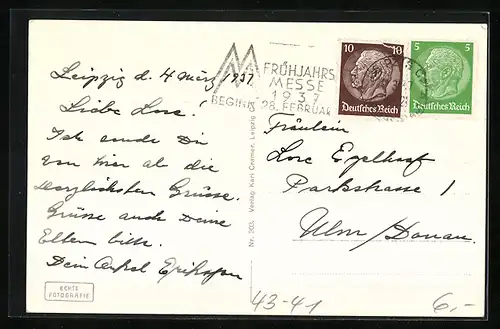 Leipzig d. 4 März 1937
Liebe Lore!
Ich sende Dir
von hier ab die
herzlichsten Grüsse.
Grüsse auch Deine
Eltern bitte.
Dein Onkel
ECHTE
FOTOGRAFIE
Nr. 303. Verlag Karl Cramer, Leipzig
MM
FRÜHJAHRS
MESSE
1937
BEGINN 28. FEBRUAR
10 10
Deutsches Reich
5 5
Deutsches Reich
Fräulein
Lore Egelhaaf
Parkstrasse 1
Ulm/Donau.
43-41
6,-